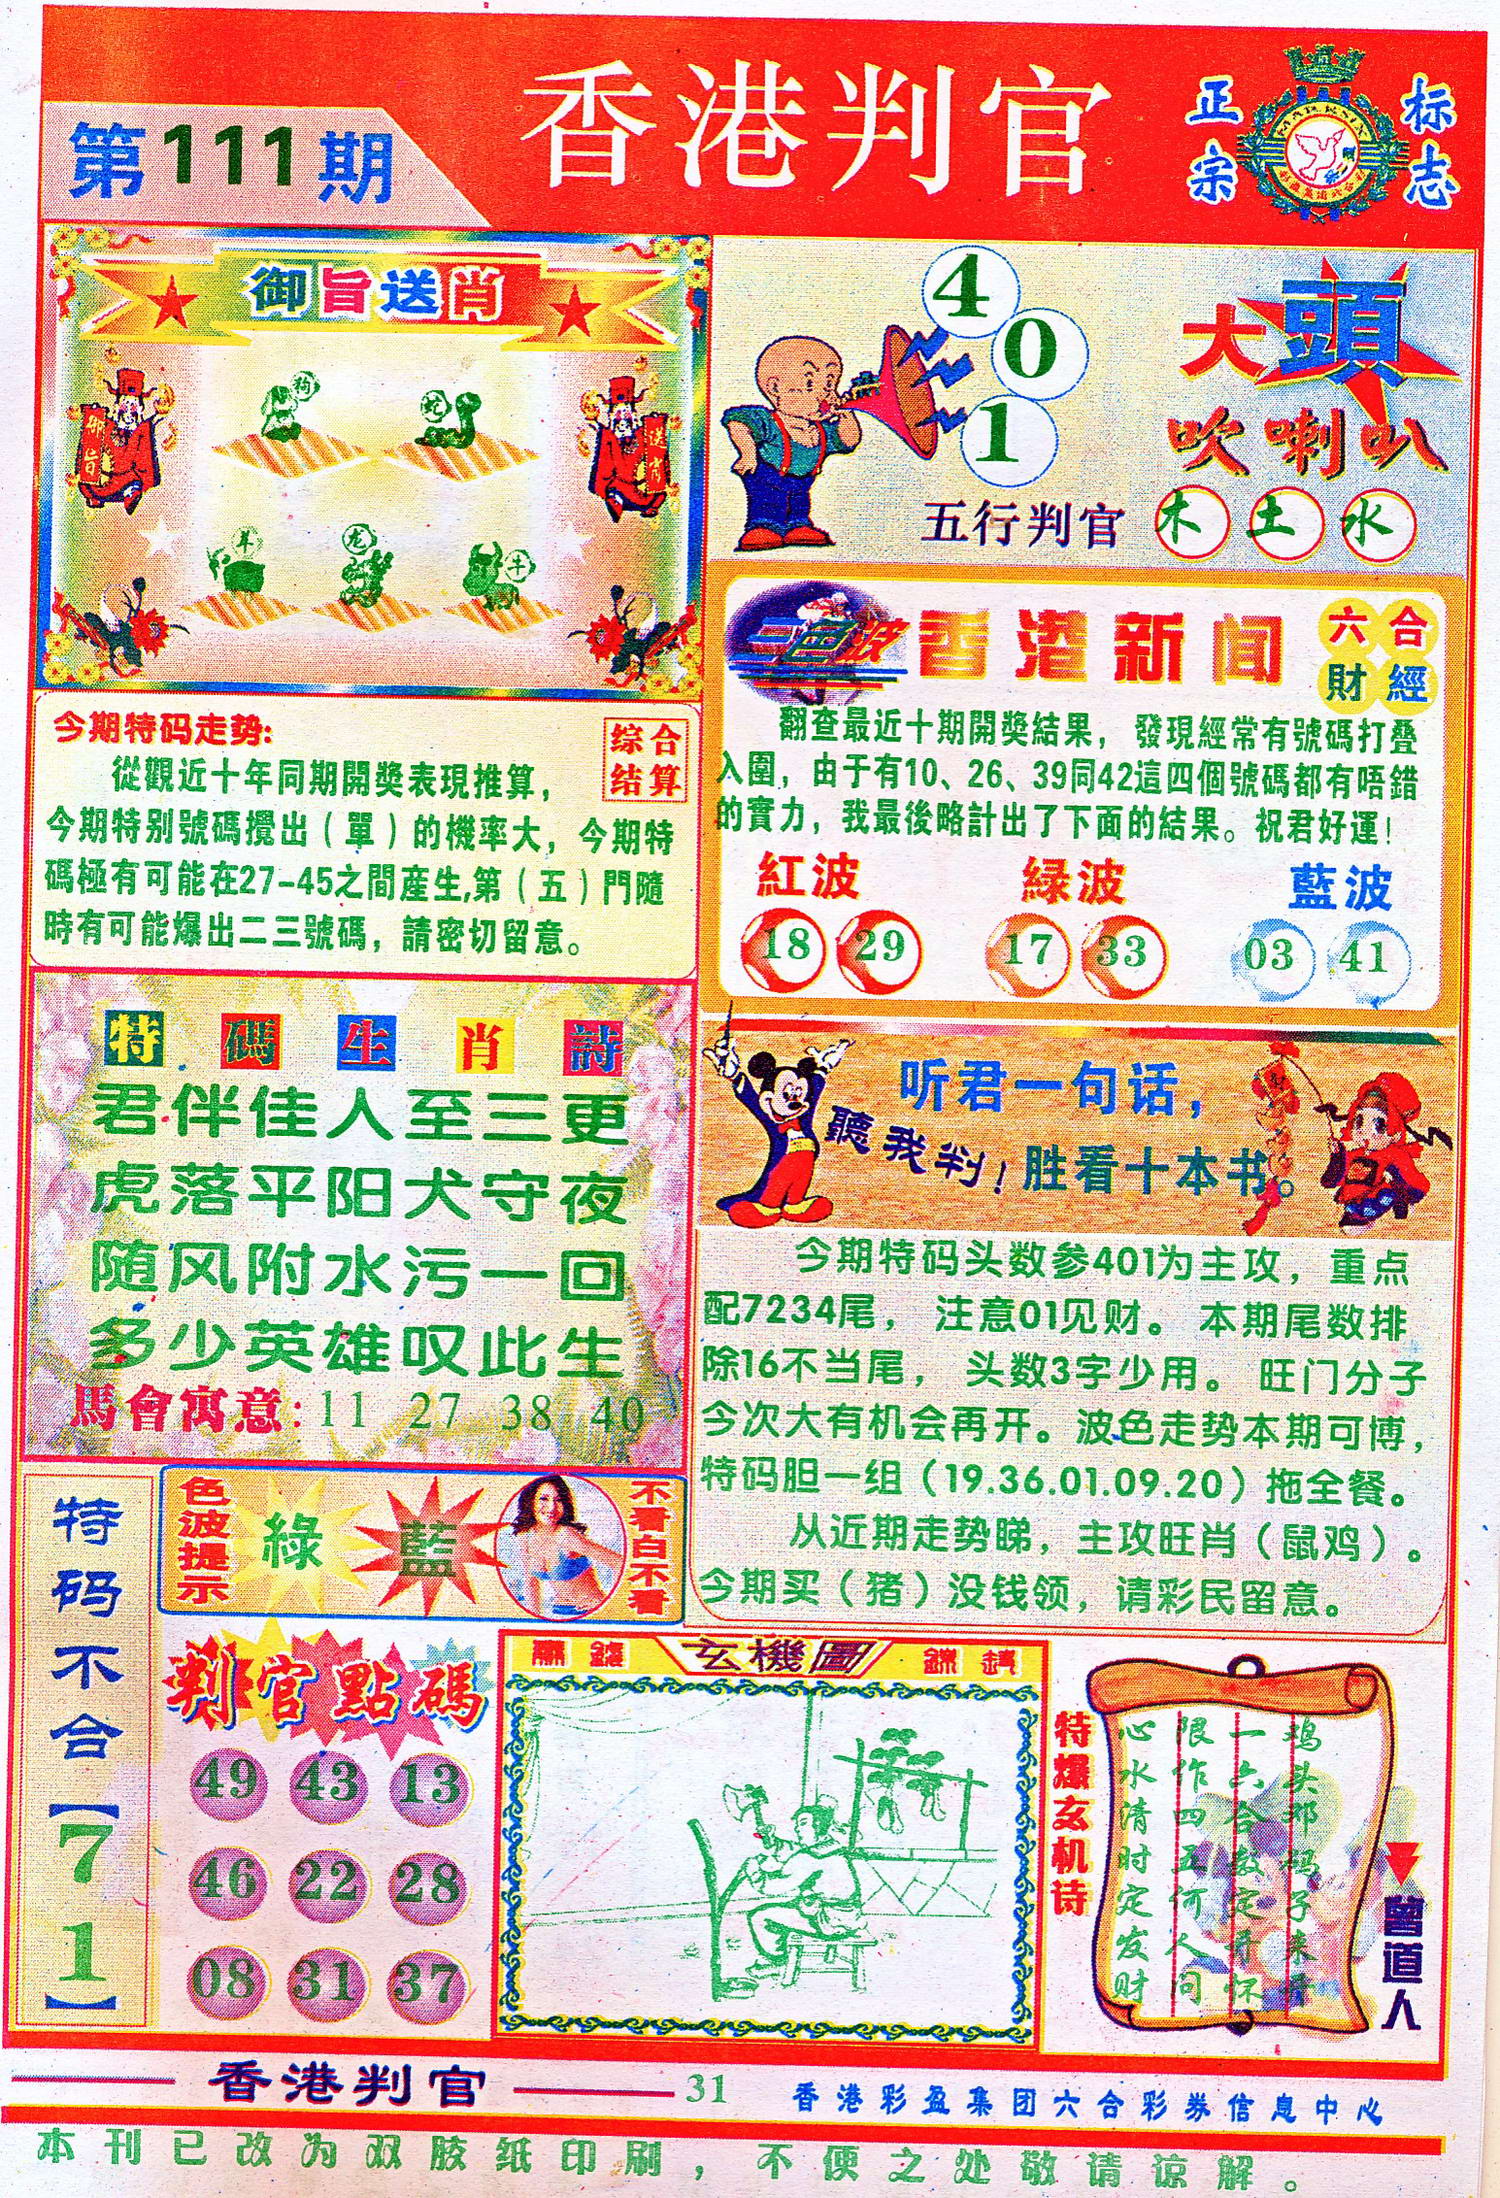 香港判官
第111期
正宗
标志
御旨送肖
狗
蛇
御旨
送肖
羊
龙
牛
4
0
1
大頭
吹喇叭
五行判官 木 土 水
今期特码走势:
综合
结算
從觀近十年同期開獎表現推算,
今期特别號碼攪出(單)的機率大,今期特
碼極有可能在27-45之間産生,第(五)門隨
時有可能爆出二三號碼,請密切留意。
三色波
香港新闻
六合
財經
翻查最近十期開獎結果,發現經常有號碼打叠
入圍,由于有10、26、39同42這四個號碼都有唔錯
的實力,我最後略計出了下面的結果。祝君好運!
紅波 緑波 藍波
18 29 17 33 03 41
特碼生肖詩
君伴佳人至三更
虎落平阳犬守夜
随风附水污一回
多少英雄叹此生
馬會寓意:11 27 38 40
听君一句话,
聽我判!
胜看十本书。
今期特码头数参401为主攻,重点
配7234尾,注意01见财。本期尾数排
除16不当尾,头数3字少用。旺门分子
今次大有机会再开。波色走势本期可博,
特码胆一组(19.36.01.09.20)拖全餐。
从近期走势睇,主攻旺肖(鼠鸡)。
今期买(猪)没钱领,请彩民留意。
特码不合【71】
色波提示
綠
藍
不看白不看
判官點碼
49 43 13
46 22 28
08 31 37
玄機圖
特爆玄机诗
鸡头邓码子来开
一六合数定开怀
限作四五何人问
心水清时定发财
曾道人
香港判官
31
香港彩盈集团六合彩券信息中心
本刊已改为双胶纸印刷,不便之处敬请谅解。